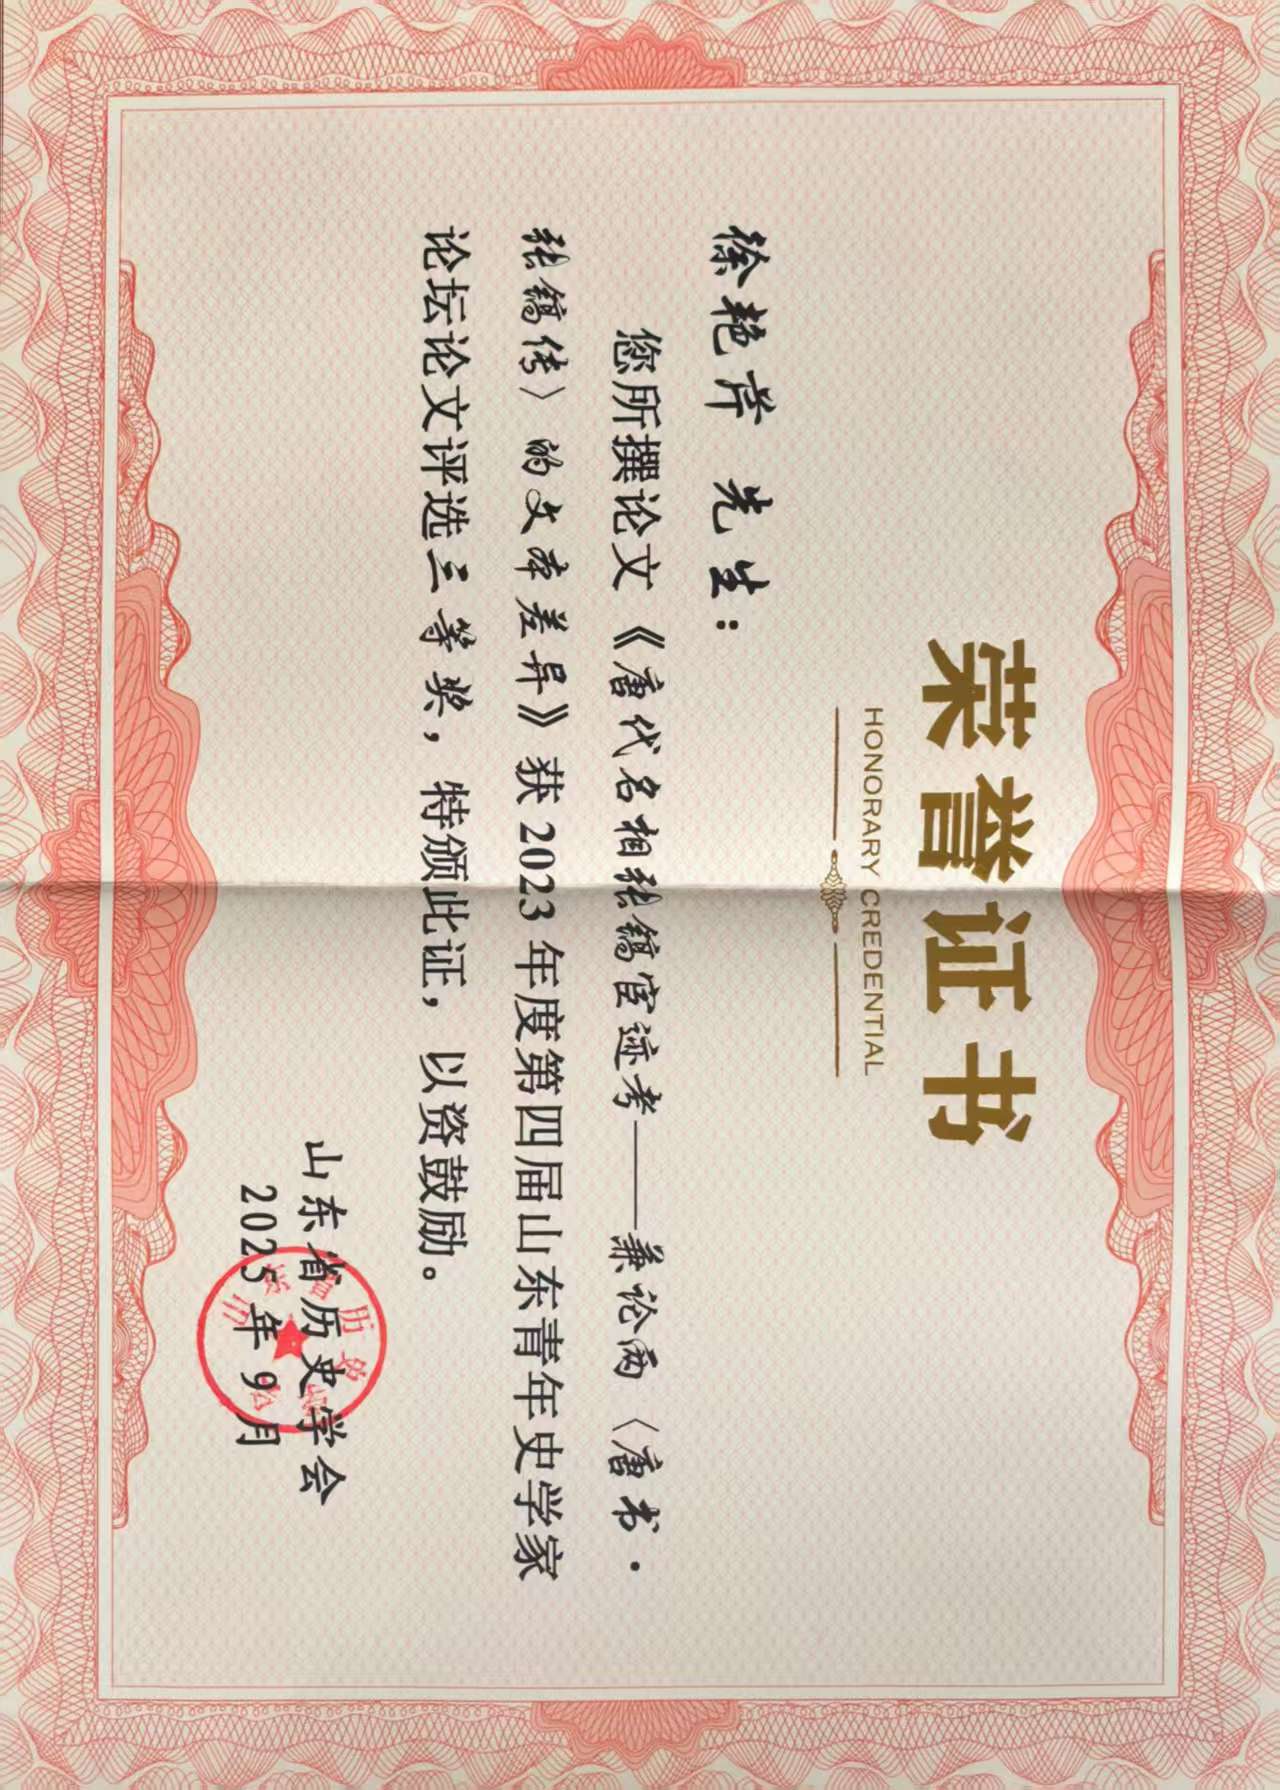 荣誉证书
HONORARY CREDENTIAL
徐艳芹 先生：
您所撰论文《唐代名相张镐宦迹考——兼论两〈唐书·
张镐传〉的文本差异》获2023年度第四届山东青年史学家
论坛论文评选三等奖，特颁此证，以资鼓励。
山东省历史学会
2025年9月